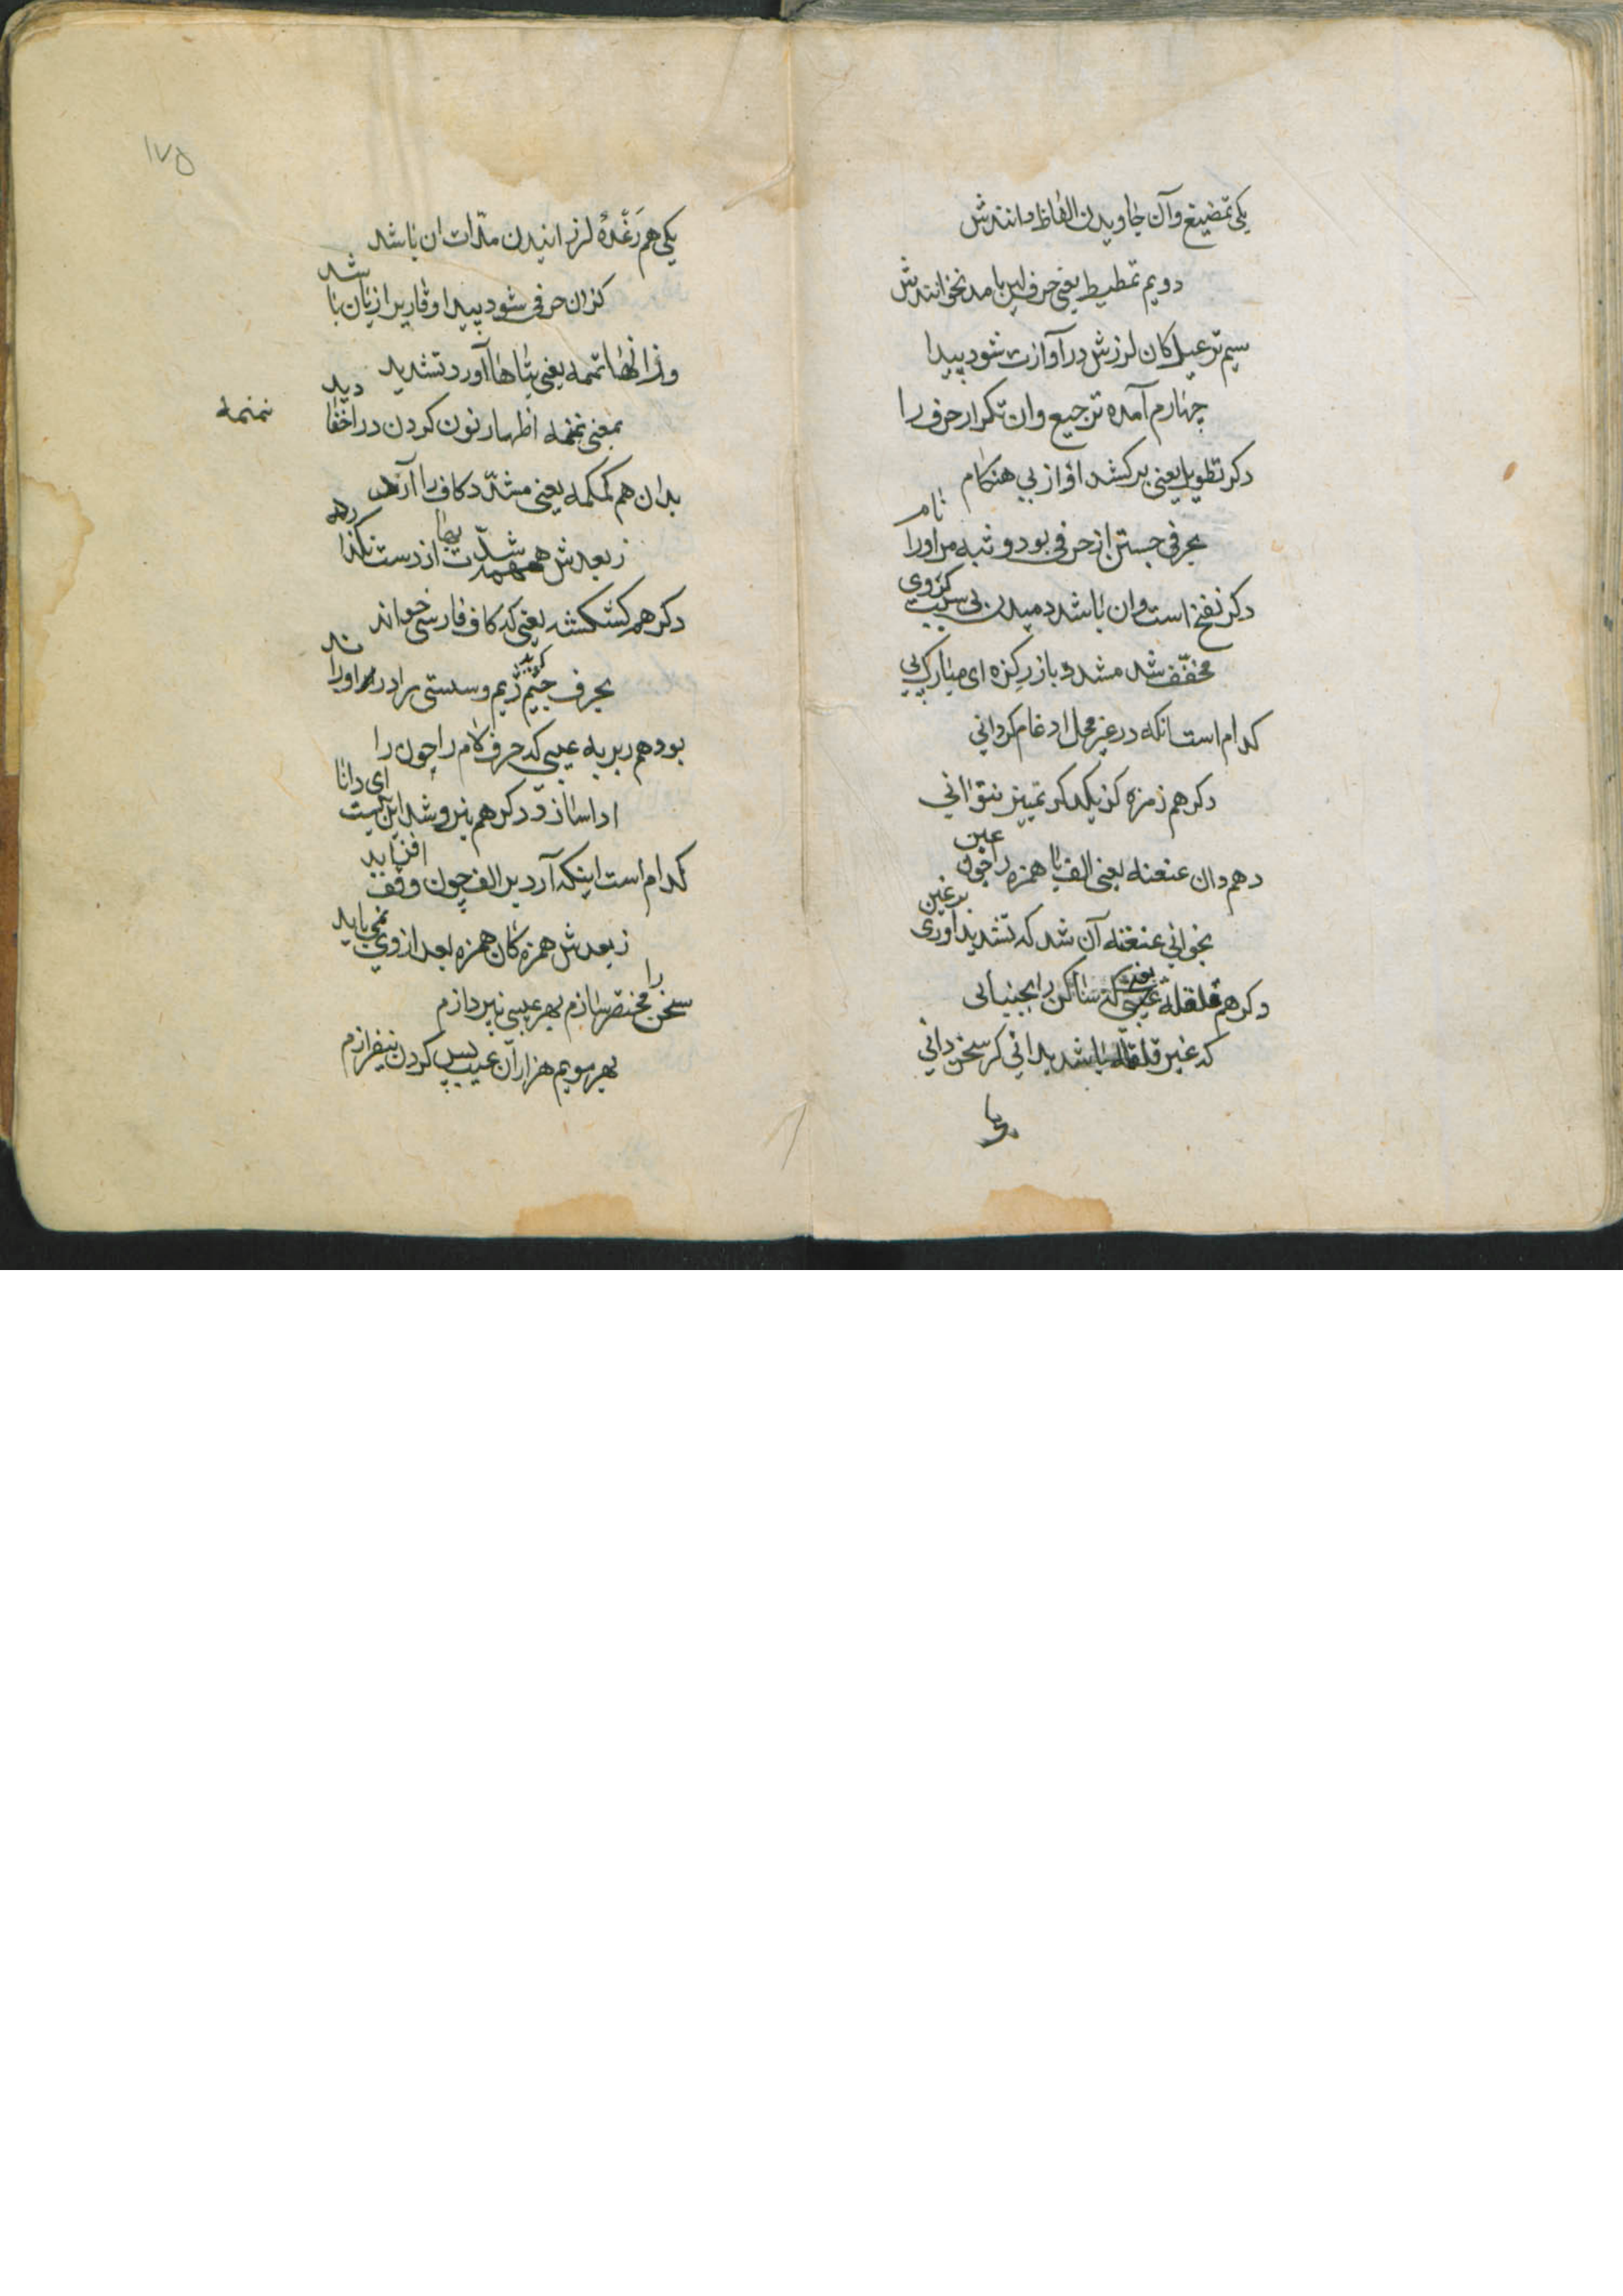 یکی تمضیغ وآن جاویدن الفاظ دانندش
دویم تمطیط یعنی حرف لین با مد نخوانندش
سیم ترعید کان لرزش در آوازت شود پیدا
چهارم آمده ترجیع وان تکرار حرف را
دکر تطویل یعنی برکشد اواز بی هنکام
بحرفی جستن از حرفی بود وثبه مر اورا نام
دکر نفخ است وان باشد دمیدن بی سبب کزوی
مخفّف شد مشدد باز رکزه ای مبارک پی
کدام است انکه در غیر محل ادغام کردانی
دکر هم زمزه کز یکدکر تمییز نتوانی
دهم دان عنعنه یعنی الف یا همزه را چون عین
بخوانی عنغنه آن شد که تشدید اوری بر غین
دکر هم قلقله عیبی که ساکن را بجنبانی
که غیر قلقله باشد بدانی کر سخن دانی
یکی هم رَعْدهٔ لرزانیدن مدّات ان باشد
کزان حرفی شود پیدا وقاریرا زیان باشد
وزانها تمتمه یعنی بتاها آورد تشدید
بمعنی نمنمه اظهار نون کردن در اخفا دید
نمنمه
بدان هم کمکمه یعنی مشدّد کاف را آرد
زبعدش همهمه شدّت بها از دست نکذارد
دکر هم کشکشه یعنی که کاف فارسی خواند
بحرف جیم ژیم وسستی برادر اورا
بود هم ربربه عیبی که حرف لام را چون را
ادا سازد دکر هم نیرو شد این کیست ای دانا
کدام است اینکه آرد بر الف چون وقف افزاید
زبعدش همزه کان همزه بعد از وی نمی باید
سخن را مختصر سازم بهر عیبی نپردازم
بهر مویم هزار آن عیب پس کردن نیفرازم